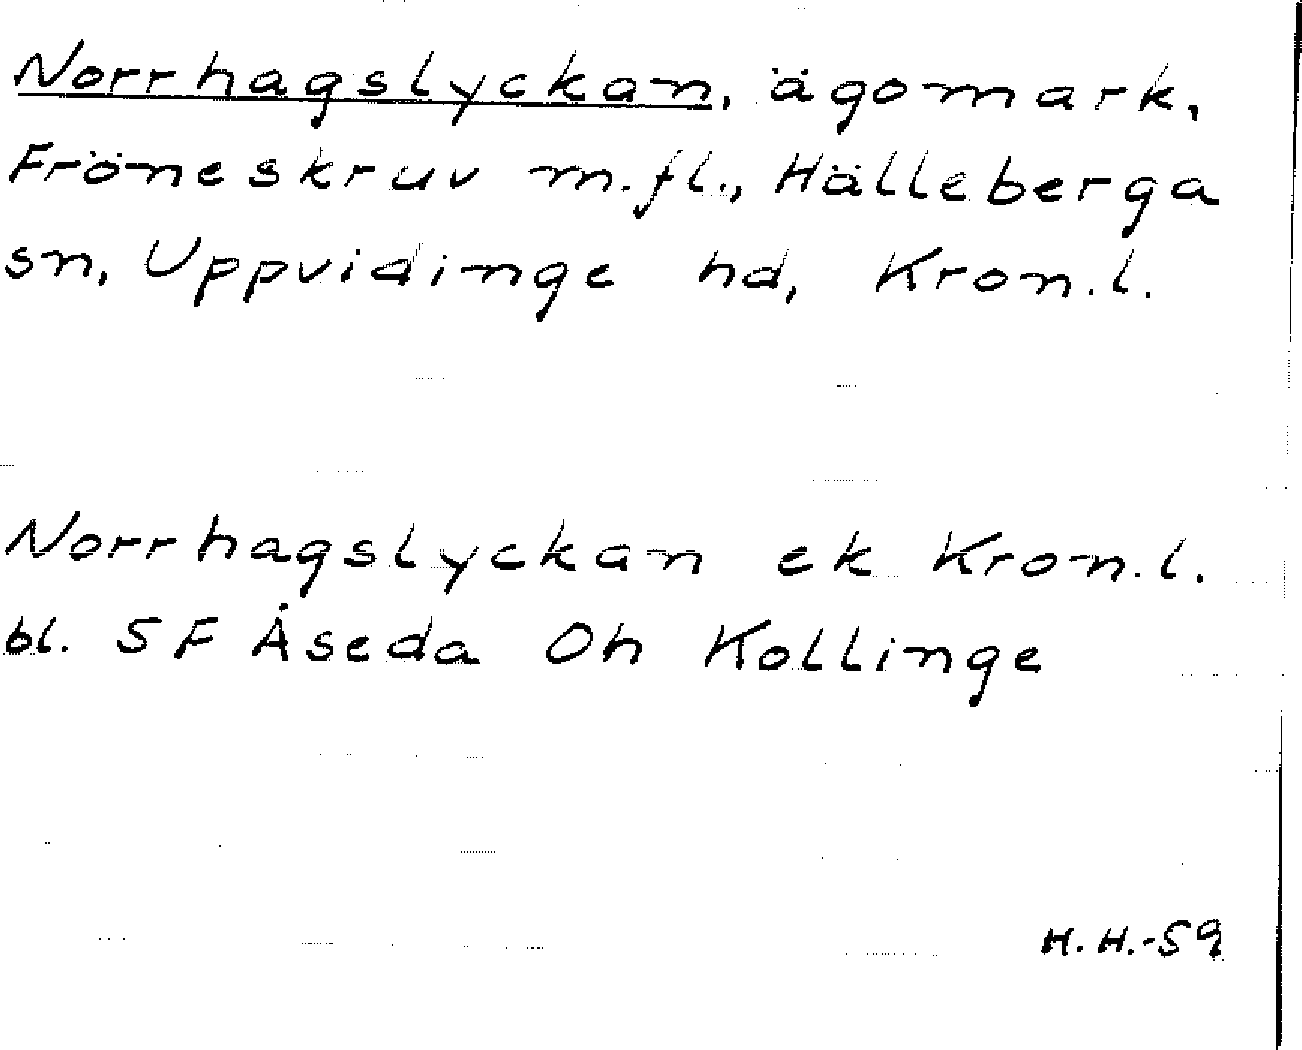 Norrhagslyckan, ägomark,
Fröneskruv m.fl., Hälleberga
sn, Uppvidinge hd, Kron.l.
Norrhagslyckan ek Kron.l.
bl. 5F Åseda Oh Kollinge
H.H.-59